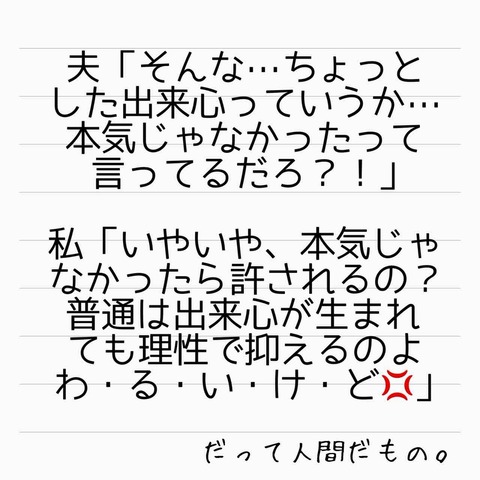 夫「そんな…ちょっと
した出来心っていうか…
本気じゃなかったって
言ってるだろ？！」
私「いやいや、本気じゃ
なかったら許されるの？
普通は出来心が生まれ
ても理性で抑えるのよ
わ・る・い・け・ど💢」
だって人間だもの。